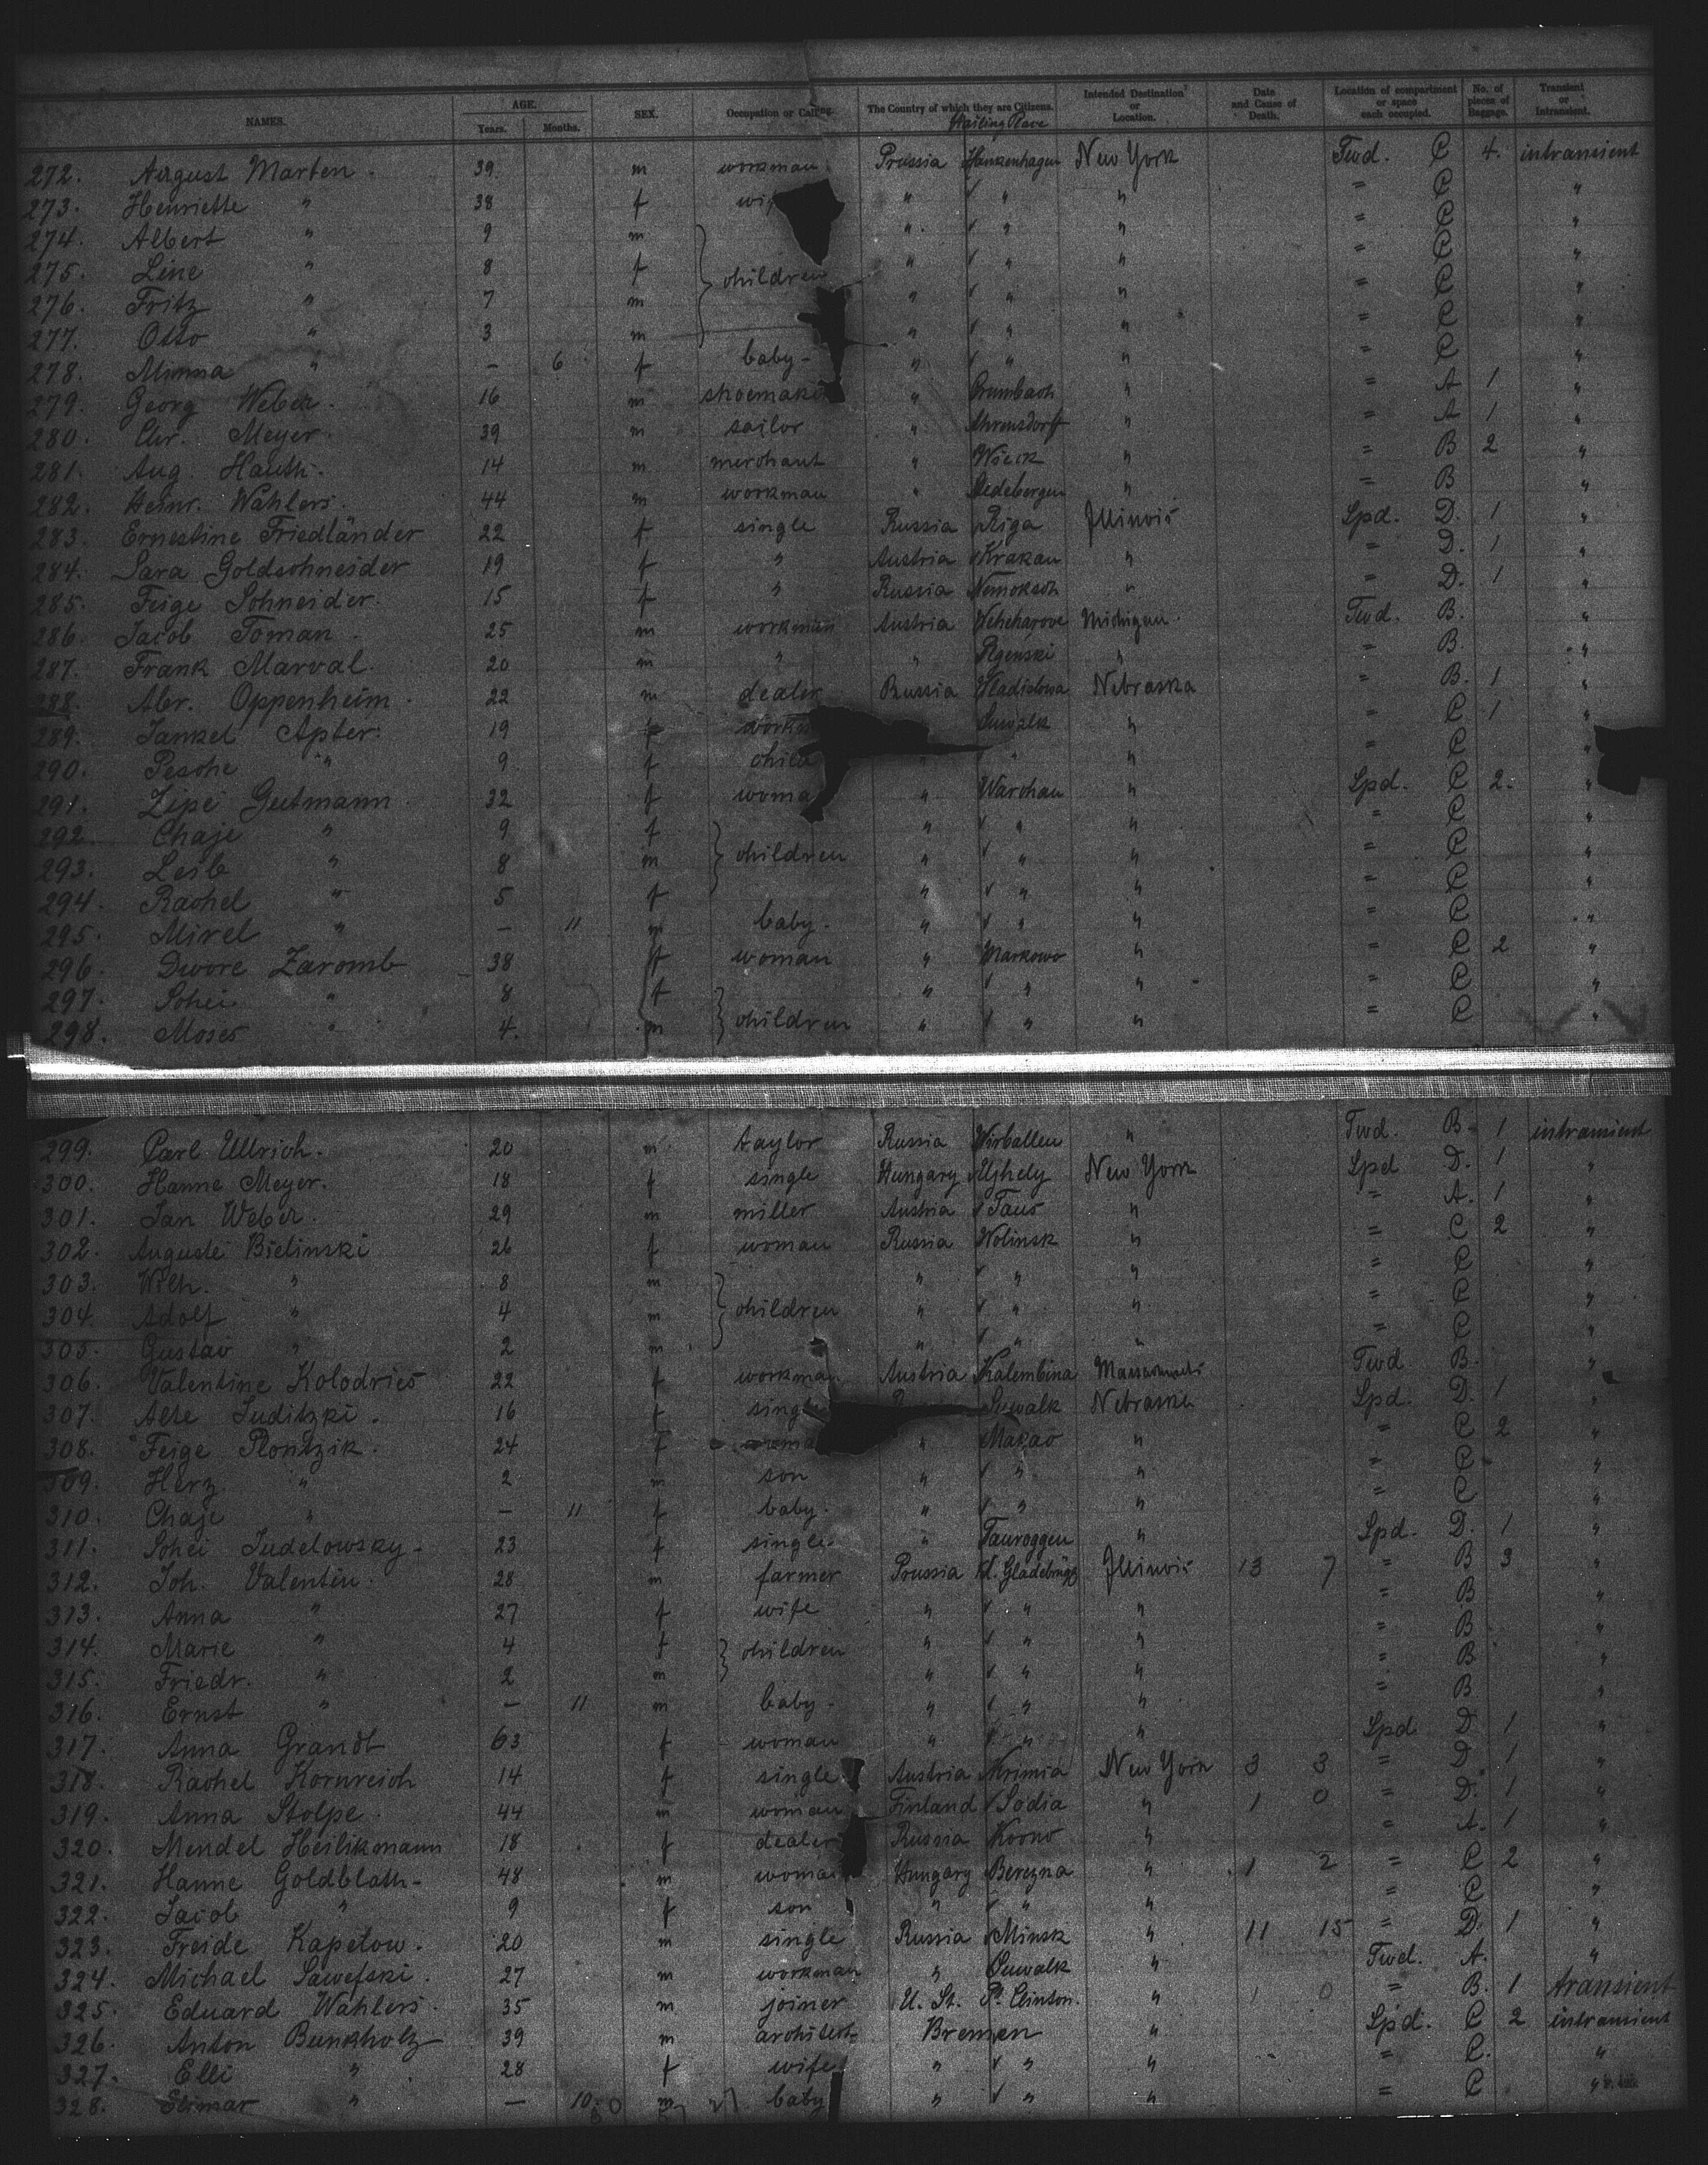 NAMES. AGE. Years. Months. SEX. Occupation or Calling. The Country of which they are Citizens. Hailing Place Intended Destination or Location. Date and Cause of Death. Location of compartment or space each occupied. No. of pieces of Baggage. Transient or Intransient.
272. August Marten. 39. m workman Prussia Hankenhagen New York Twd. C 4. intransient
273. Henriette " 38 f " " " = C "
274. Albert " 9 m " " " = C "
275. Line " 8 f children " " " = C "
276. Fritz " 7 m " " " = C "
277. Otto " 3 m " " " = C "
278. Minna " — 6 f baby- " " " = C "
279. Georg Weber. 16 m " " = A 1 "
280. Chr. Meyer. 39 m sailor " Ahrensdorf " = A 1 "
281. Aug. Hauth. 14 m merchant " Wieck " = B 2 "
282. Heinr. Wahlers. 44 m workman " " = B "
283. Ernestine Friedländer 22 f single Russia Riga Illinois Spd. D. 1 "
284. Sara Goldschneider 19 f " Austria Krakau " = D. 1 "
285. Feige Schneider. 15 f " Russia Nemoksch " = D. 1 "
286. Jacob Toman. 25 m workman Austria Michigan. Twd. B. "
287. Frank Marval. 20 m " " " = B. "
288. Abr. Oppenheim. 22 m dealer Russia Wladislowa Nebraska = B. 1 "
289. Jankel Apter. 19 f Suwalk " = C 1 "
290. Pesche " 9. f child " " " = C "
291. Zipe Gutmann 32 f " Warchau " Spd. C 2. "
292. Chaje " 9 f " " " = C "
293. Leib " 8 m children " " " = C "
294. Rachel " 5 f " " " = C "
295. Mirel " — 11 m baby. " " " = C "
296. Dwore Zaromb 38 f woman " Markowo " = C 2 "
297. Schei " 8 f " " " = C "
298. Moses " 4. m children " " " = C "
299. Carl Ullrich. 20 m taylor Russia Wirballen " Twd. B. 1 intransient
300. Hanne Meyer. 18 f single Hungary Ujhely New York Spd D. 1 "
301. Jan Weber. 29 m miller Austria Taus " = A. 1 "
302. Auguste Bielinski 26 f woman Russia Wolinsk " = C 2 "
303. Wilh. " 8 m " " " = C "
304. Adolf " 4 m children " " " = C "
305. Gustav " 2 m " " " = C "
306. Valentine Kolodries 22 f workman Austria Kalembina Twd B. "
307. Alte Juditzki. 16 f single Suwalk Nebraska Spd. D. 1 "
308. Feige Plontzik. 24 f " Makao " = C 2 "
309. Herz. " 2 m son " " " = C "
310. Chaje " — 11 f baby. " " " = C "
311. Schei Judelowsky. 23 f single. " Tauroggen " Spd. D. 1 "
312. Joh. Valentin. 28 m farmer Prussia Illinois 13 7 = B 3 "
313. Anna " 27 f wife " " " = B "
314. Marie " 4 f children " " " = B "
315. Friedr. " 2 m " " " = B "
316. Ernst " — 11 m baby- " " " = B "
317. Anna Grandt 63 f woman " " " Spd D 1 "
318. Rachel Kornreich 14 f single Austria New York 3 3 = D 1 "
319. Anna Stolpe. 44 m woman Finland Sodia " 1 0 = D. 1 "
320. Mendel Heilikmann 18 f dealer Russia Kowno " = A. 1 "
321. Hanne Goldblath- 48 m woman Hungary Berezna " 1 2 = C 2 "
322. Jacob " 9 f son " " " = C "
323. Freide Kapelow. 20 m single Russia Minsk " 11 15 = D. 1 "
324. Michael Sawefski. 27 m workman " Suwalk " Twd. A. "
325. Eduard Wahlers. 35 m joiner U. St. Pt. Clinton. " 1 0 = B. 1 transient
326. Anton Bunkholz 39 m architect- Bremen " Spd. C 2 intransient
327. Elli " 28 f wife " " " = C. "
328. Elimar " — 10. m baby " " " = C "